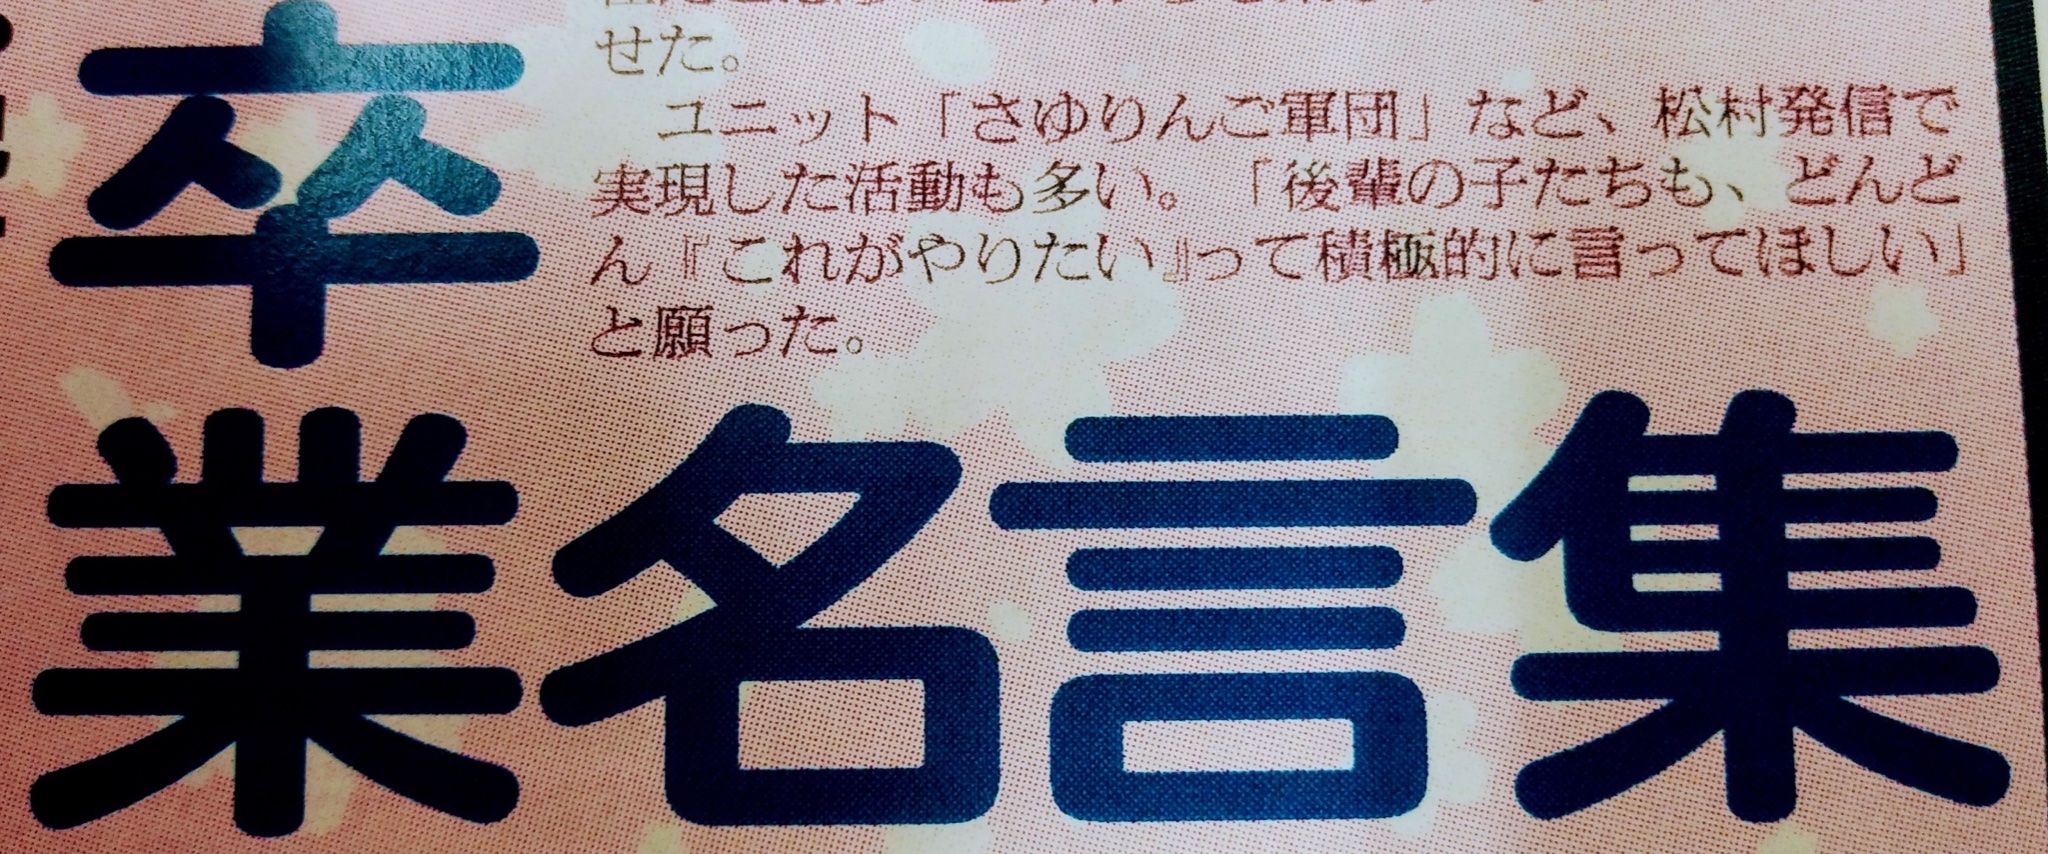 せた。
　ユニット「さゆりんご軍団」など、松村発信で
実現した活動も多い。「後輩の子たちも、どんど
ん『これがやりたい』って積極的に言ってほしい」
と願った。
卒
業名言集